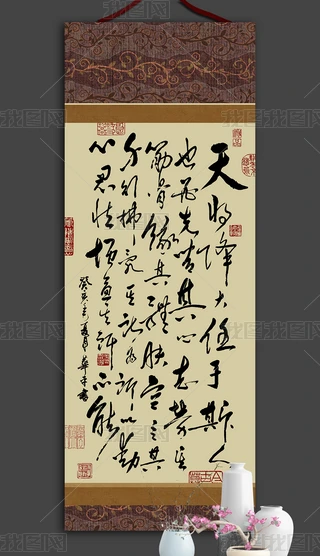 天将降大任于斯人
也必先苦其心志劳其
筋骨饿其体肤空乏其
身行拂乱其所为所以动
心忍性增益其所不能